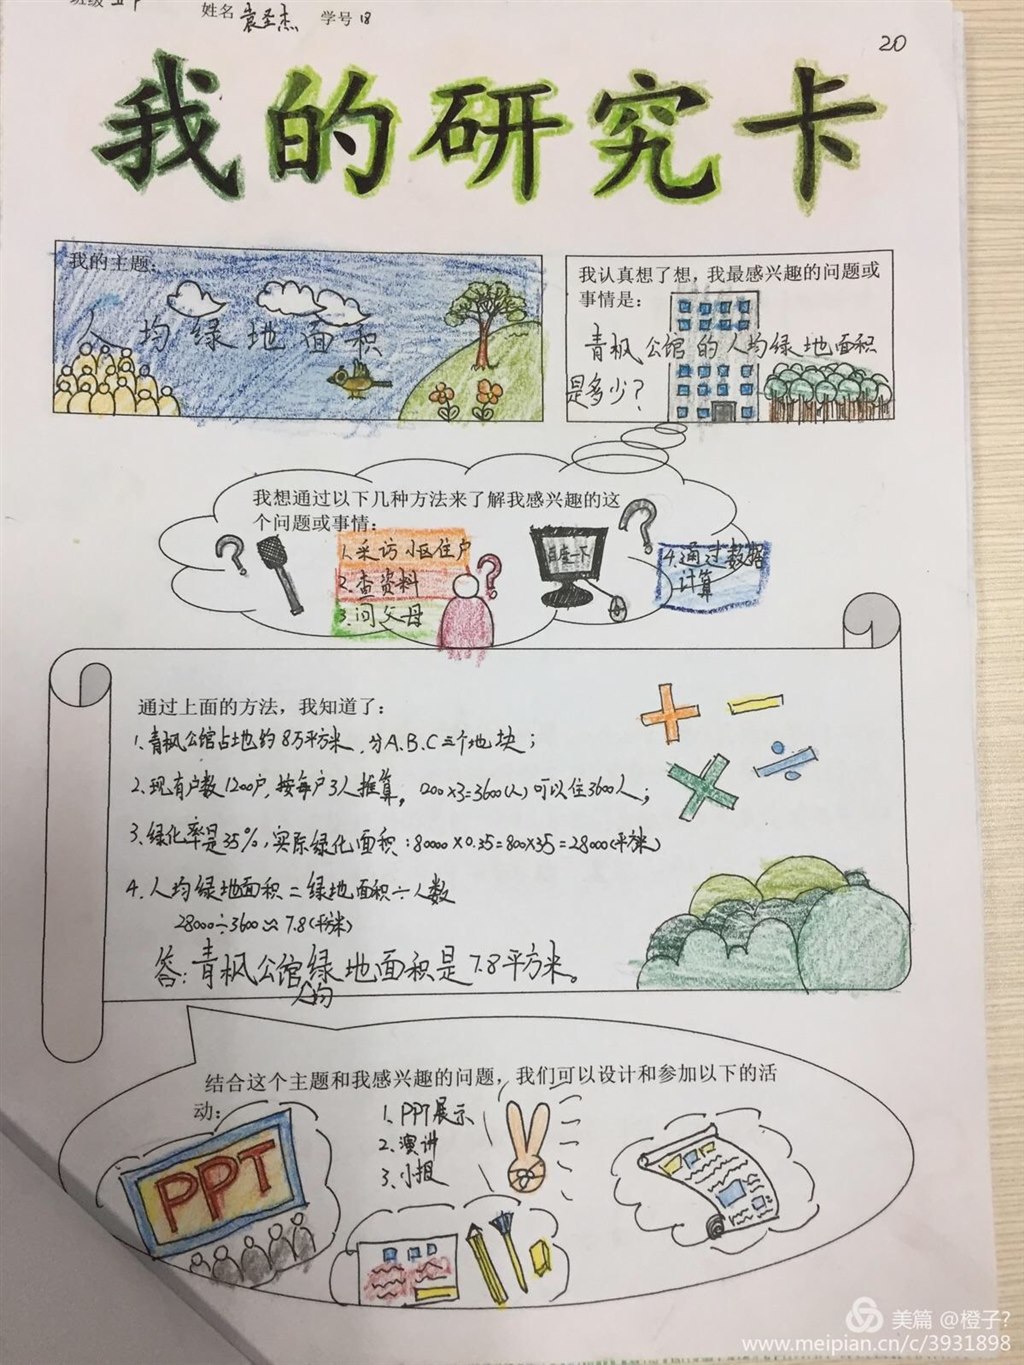 姓名 袁圣杰 学号 18
20
我的研究卡
我的主题：
人均绿地面积
我认真想了想，我最感兴趣的问题或
事情是：
青枫公馆的人均绿地面积
是多少？
我想通过以下几种方法来了解我感兴趣的这
个问题或事情：
1.采访小区住户
2.查资料
3.问父母
百度一下
4.通过数据
计算
通过上面的方法，我知道了：
1.青枫公馆占地约8万平方米，分A.B.C三个地块；
2.现有户数1200户，按每户3人推算，1200×3=3600(人)可以住3600人；
3.绿化率是35%，实际绿化面积：80000×0.35=800×35=28000(平方米)
4.人均绿地面积=绿地面积÷人数
28000÷3600≈7.8(平方米)
答：青枫公馆人均绿地面积是7.8平方米。
结合这个主题和我感兴趣的问题，我们可以设计和参加以下的活
动：
1.PPT展示
2.演讲
3.小报
PPT
美篇 @橙子?
www.meipian.cn/c/3931898